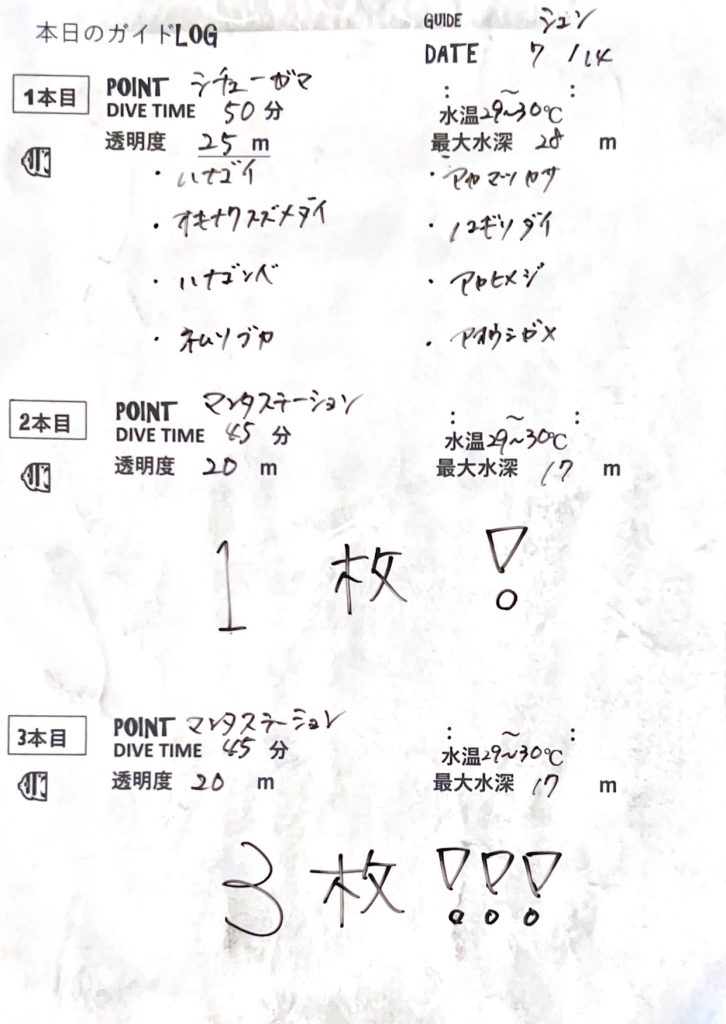 本日のガイドLOG
GUIDE シュン
DATE 7/14
1本目
POINT シチューガマ
DIVE TIME 50 分
: ～ :
水温29~30℃
透明度 25 m
最大水深 28 m
・ハナゴイ
・アヤマツカサ
・オキナワスズメダイ
・ノコギリダイ
・ハナゴンベ
・アカヒメジ
・ネムリブカ
・アオウミガメ
2本目
POINT マンタステーション
DIVE TIME 45 分
: ～ :
水温29~30℃
透明度 20 m
最大水深 17 m
1枚!
3本目
POINT マンタステーション
DIVE TIME 45 分
: ～ :
水温29~30℃
透明度 20 m
最大水深 17 m
3枚!!!